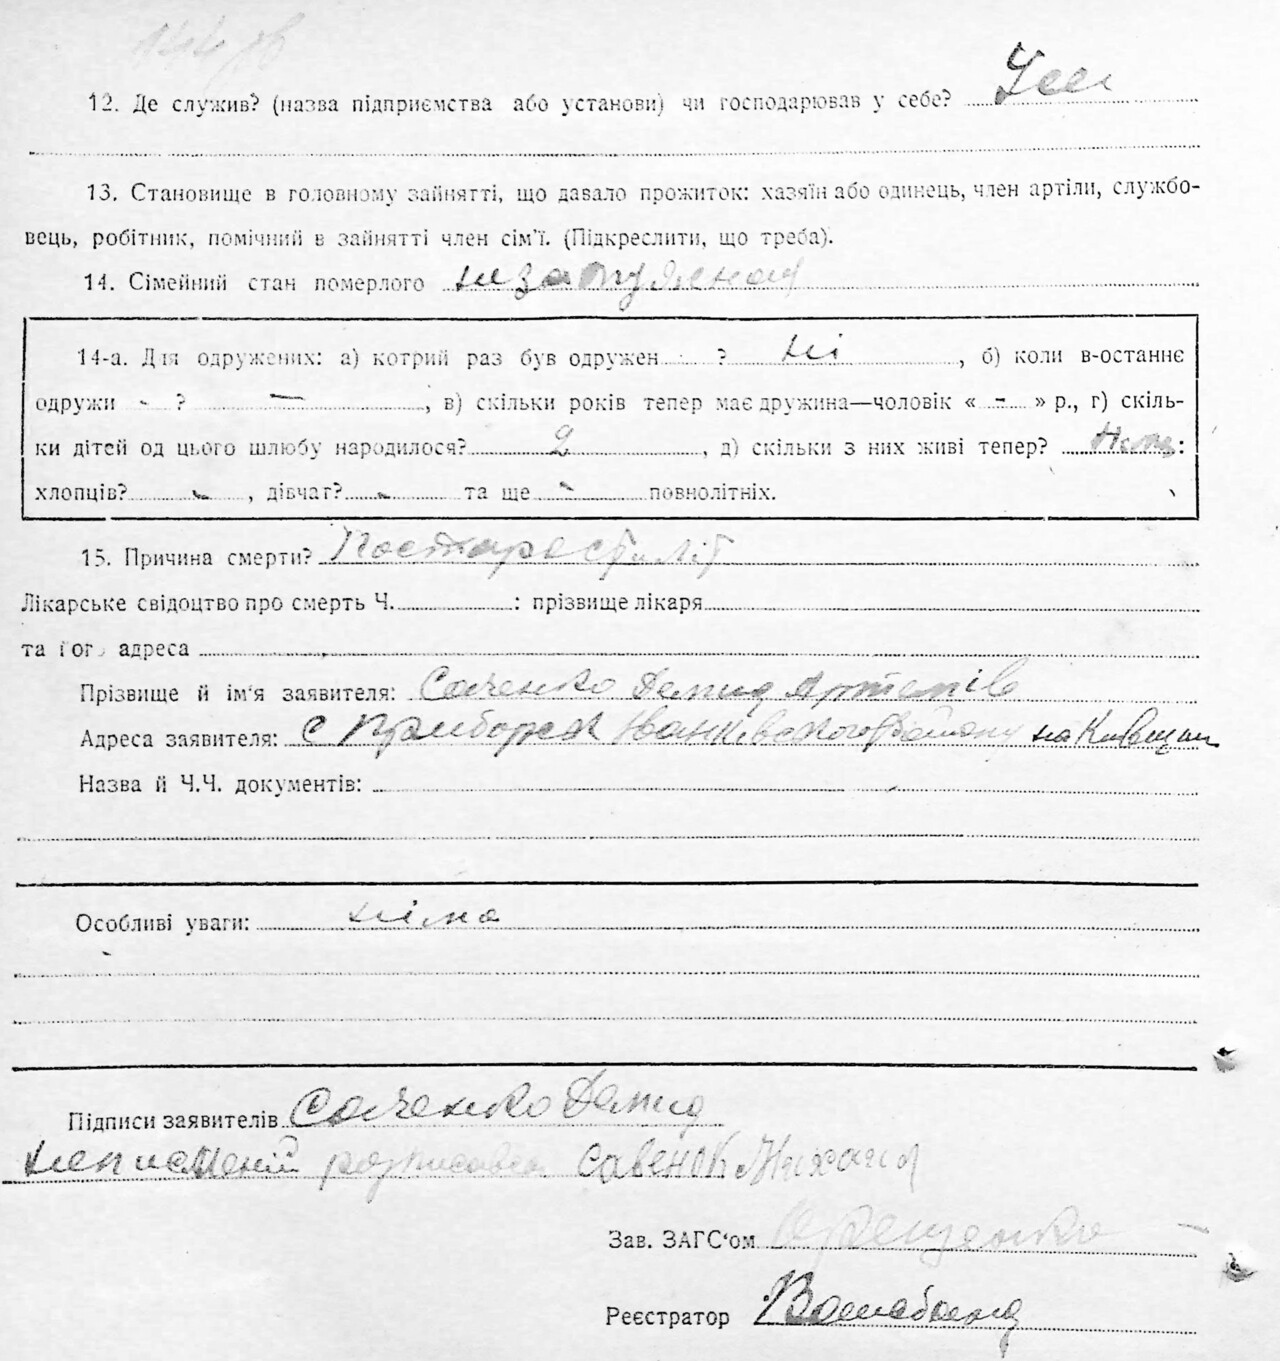 12. Де служив? (назва підприємства або установи) чи господарював у себе?
13. Становище в головному зайнятті, що давало прожиток: хазяїн або одинець, член артілі, службо-
вець, робітник, помічний в зайнятті член сім'ї. (Підкреслити, що треба).
14. Сімейний стан померлого
14-а. Для одружених: а) котрий раз був одружен - ? ні, б) коли в-останнє
одружи - ? —, в) скільки років тепер має дружина—чоловік « - » р., г) скіль-
ки дітей од цього шлюбу народилося? 2, д) скільки з них живі тепер? :
хлопців? -, дівчат? - та ще - повнолітніх.
15. Причина смерти?
Лікарське свідоцтво про смерть Ч. : прізвище лікаря
та його адреса
Прізвище й ім'я заявителя: Саченко Демид Артемів
Адреса заявителя: с Приборск Іванківского району на Київщині
Назва й Ч.Ч. документів:
Особливі уваги: німа
Підписи заявителів Саченко Демид
неписмений розписався Савенок Михаил
Зав. ЗАГС'ом
Реєстратор